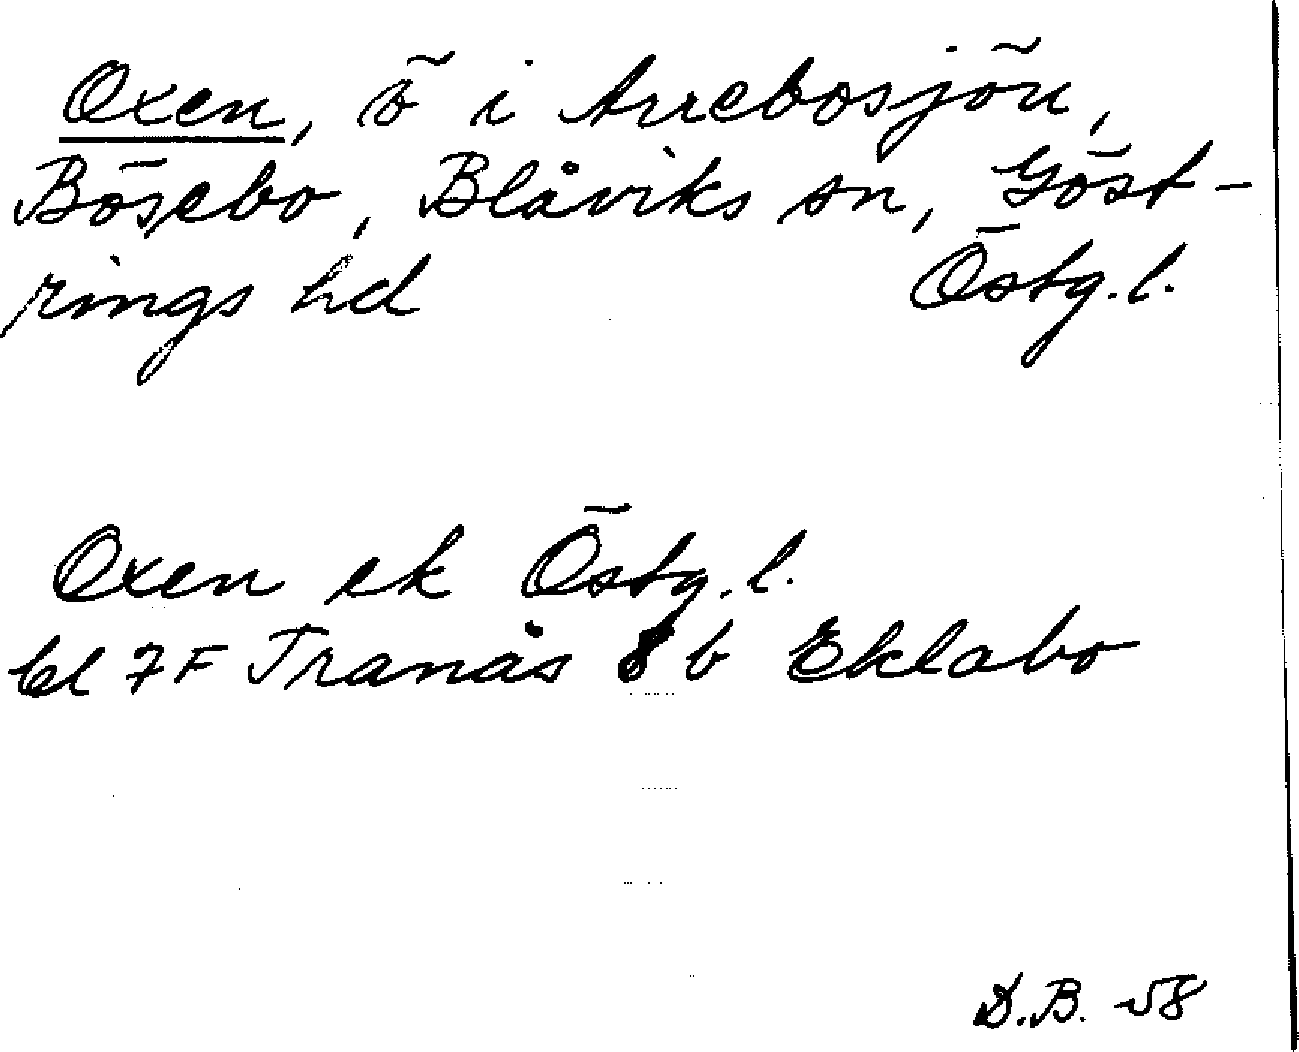 Oxen, ö i Arrebosjön,
Bösebo, Blåviks sn, Göst-
rings hd Östg. l.
Oxen ek Östg. l.
bl 7F Tranås 8 b Eklabo
D.B. -58